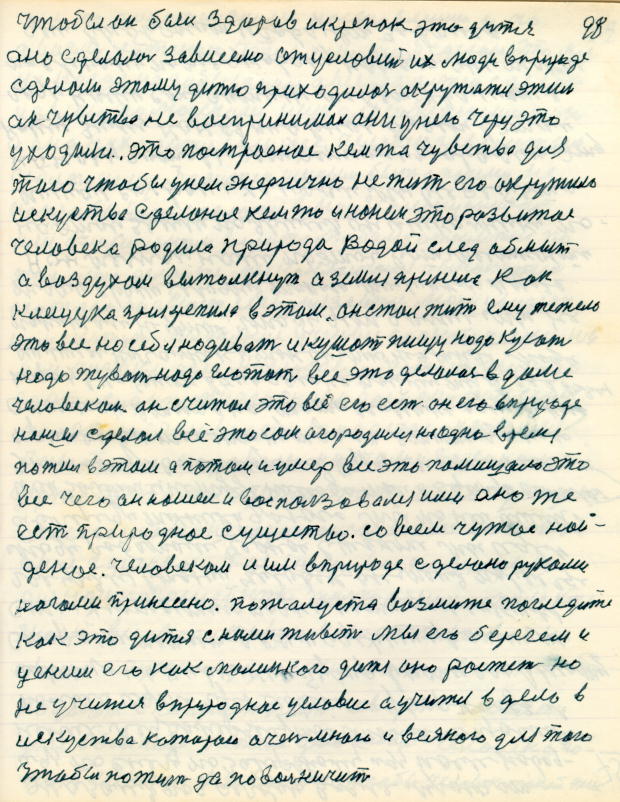 чтобы он был здоров и крепок это дитя 98
оно сделалос зависемо от условий их люди в природе
сделали этому дитю приходилос окружатся этим
он чувства не воспринимал они у него через это
уходили. это построеное кем то чувства для
того чтобы у нем энергично не жит его окружило
искуства сделаное кем то и на нем это развитое
человека родила природа водой след обмыт
а воздухом вытолкнут а земля приняла как
клещука прицепила в этом. он стал жит ему тежело
это все на себя надиват и кушат пищу надо кусат
надо жуват надо глотат все это делалос в доме
человеком. он считал это всё его ест он его в природе
нашел сделал всё это сам огородился на одно время
пожил в этом а потом и умер все это помешало это
все чего он нашел и воспользовался ими оно же
ест природное существо. со всем чужое най-
деное. человеком и им в природе сделано руками
ногами принесено. пожалуста возмите погледите
как это дитя с нами живет мы его берегем и
ценим его как малицкого дитя оно ростет но
не учится в природное условие а учится в дело в
искуства которого очен много и всякого для того
чтобы пожит да поволничит